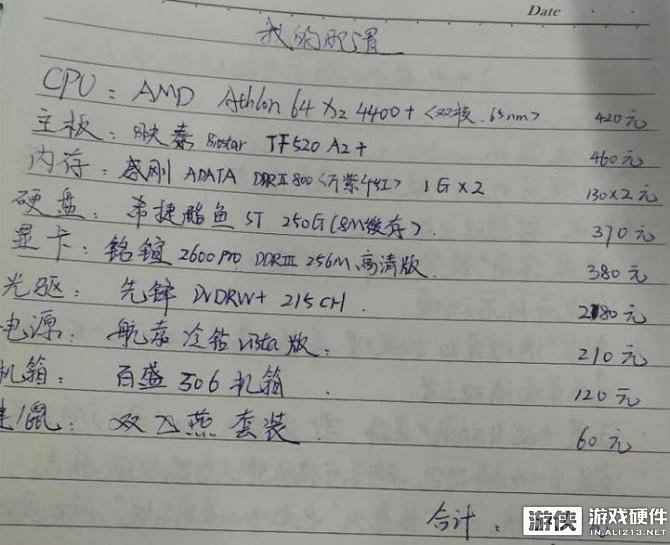 Date
我的配置
CPU：AMD Athlon 64 X2 4400+ <双核.65nm> 420元
主板：映泰 Biostar TF520 A2+ 460元
内存：威刚 ADATA DDRII800<万紫千红> 1G×2 130×2元
硬盘：希捷酷鱼 ST 250G(8M缓存). 370元
显卡：铭瑄 2600Pro DDRIII 256M 高清版. 380元
光驱：先锋 DVDRW+ 215CH. 280元
电源：航嘉冷钻vista版. 210元
机箱：百盛 306 机箱. 120元
键/鼠：双飞燕套装. 60元
合计：
游侠 游戏硬件
IN.ALI213.NET